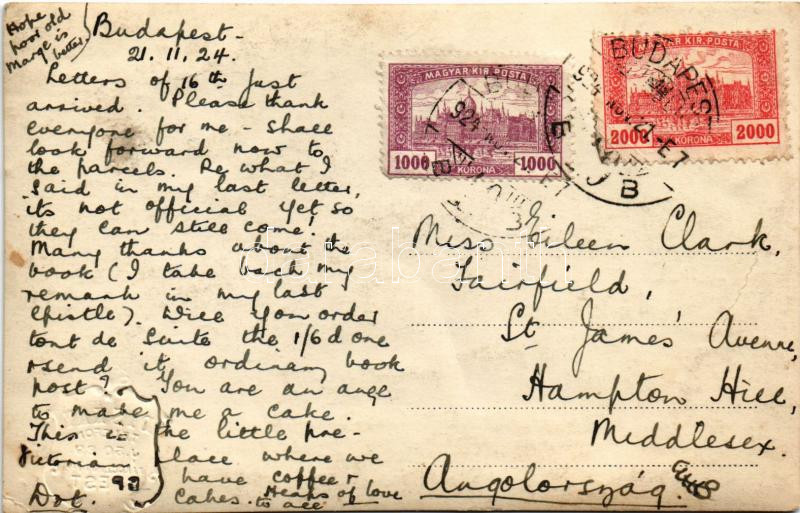 Hope
poor old
Marge is
better.
Budapest -
21. 11. 24.
Letters of 16th just
arrived. Please thank
everyone for me - shall
look forward now to
the parcels. Re what I
said in my last letter,
its not official yet so
they can still come!
Many thanks about the
book (I take back my
remark in my last
epistle). Will you order
tout de suite the 1/6d one
& send it ordinary book
post? You are an angel
to make me a cake.
This is the little pre-
Victorian place where we
have coffee &
cakes. Heaps of love
to all
Dot.
93
MAGYAR KIR. POSTA
1000 1000
KORONA
MAGYAR KIR. POSTA
2000 2000
KORONA
BUDAPEST
Miss Eileen Clark,
Fairfield,
St James' Avenue,
Hampton Hill,
Middlesex.
Angolország.
darabanth